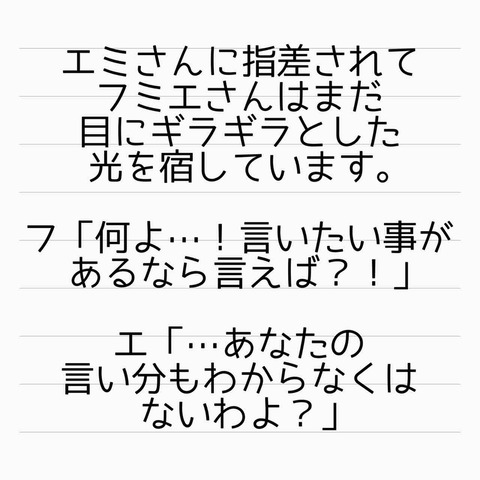 エミさんに指差されて
フミエさんはまだ
目にギラギラとした
光を宿しています。
フ「何よ…！言いたい事が
あるなら言えば？！」
エ「…あなたの
言い分もわからなくは
ないわよ？」